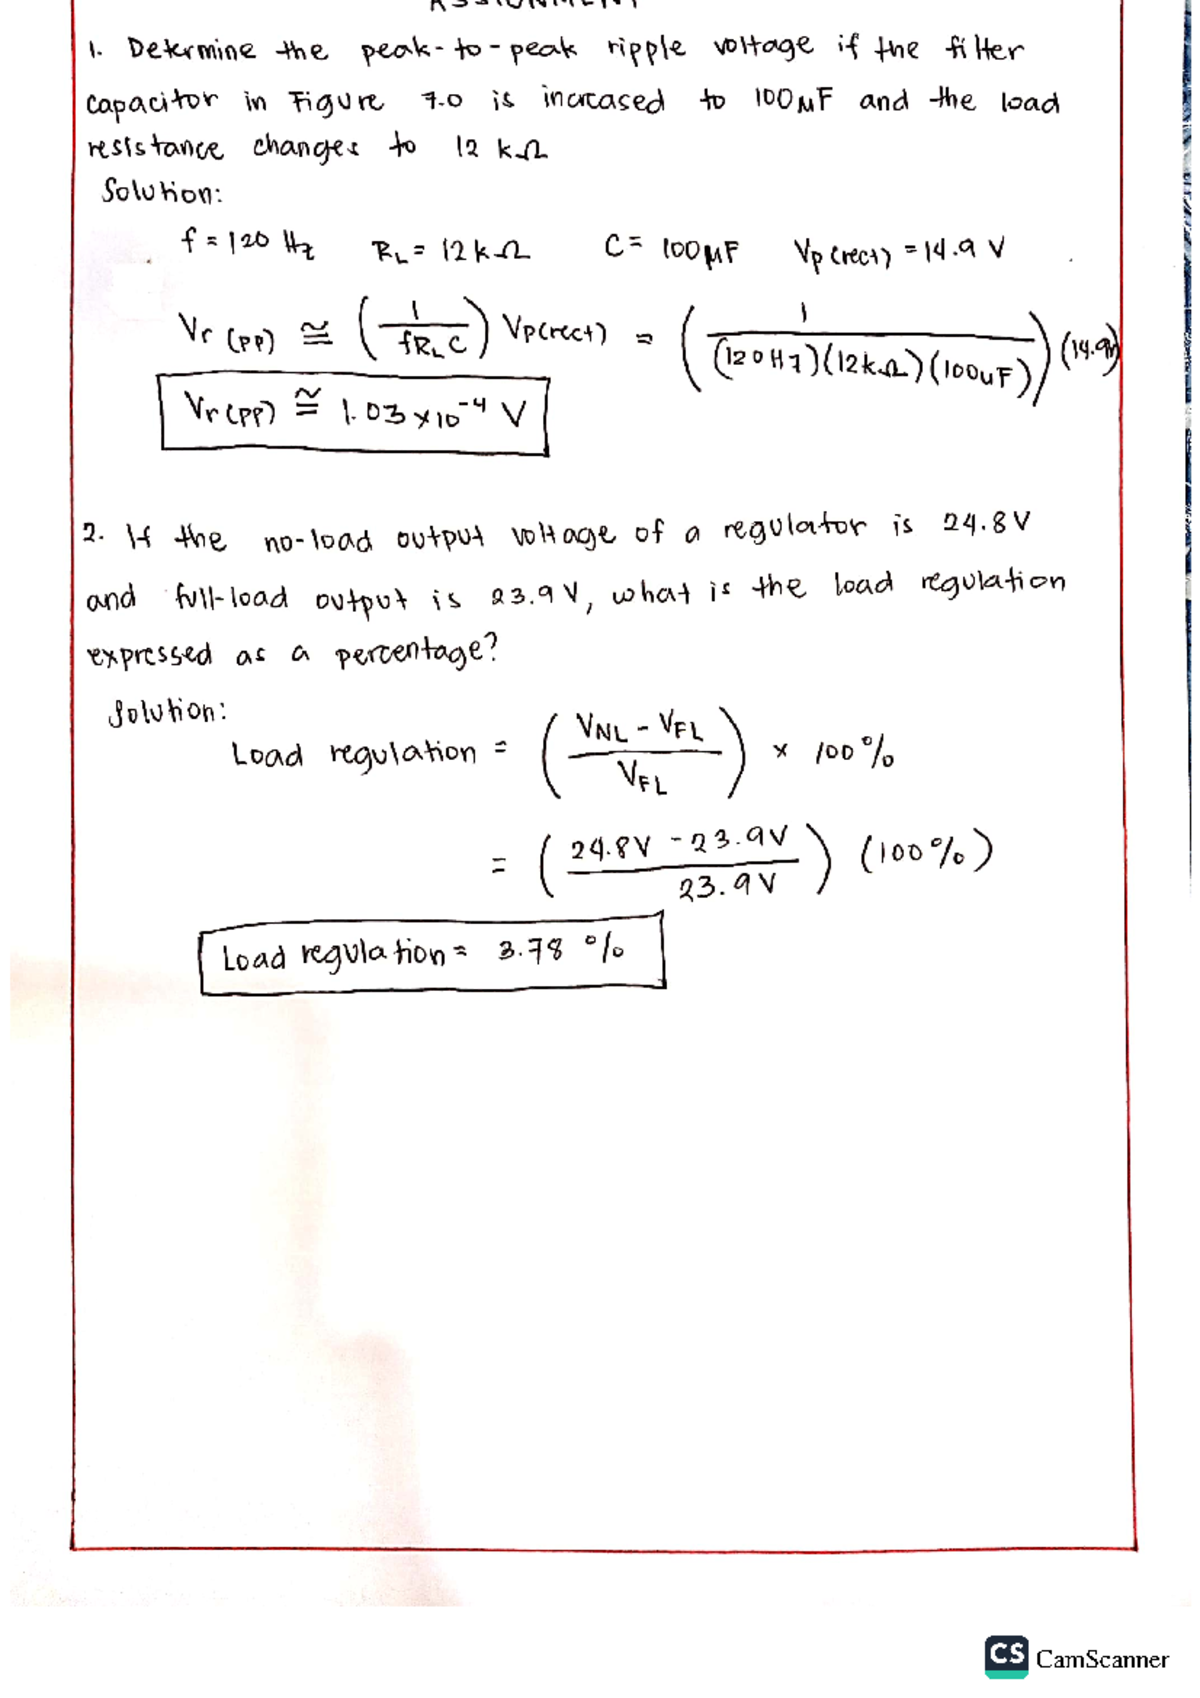 ASSIGNMENT
1. Determine the peak-to-peak ripple voltage if the filter
capacitor in Figure 7.0 is increased to 100μF and the load
resistance changes to 12 kΩ
Solution:
f = 120 Hz RL = 12 kΩ C = 100μF Vp(rect) = 14.9 V
Vr(PP) ≅ (1/fRLC) Vp(rect) = (1/(120Hz)(12kΩ)(100uF)) (14.9V)
Vr(PP) ≅ 1.03 x 10^-4 V
2. If the no-load output voltage of a regulator is 24.8V
and full-load output is 23.9V, what is the load regulation
expressed as a percentage?
Solution:
Load regulation = (VNL - VFL / VFL) x 100%
= (24.8V - 23.9V / 23.9V) (100%)
Load regulation = 3.78 %
CS CamScanner